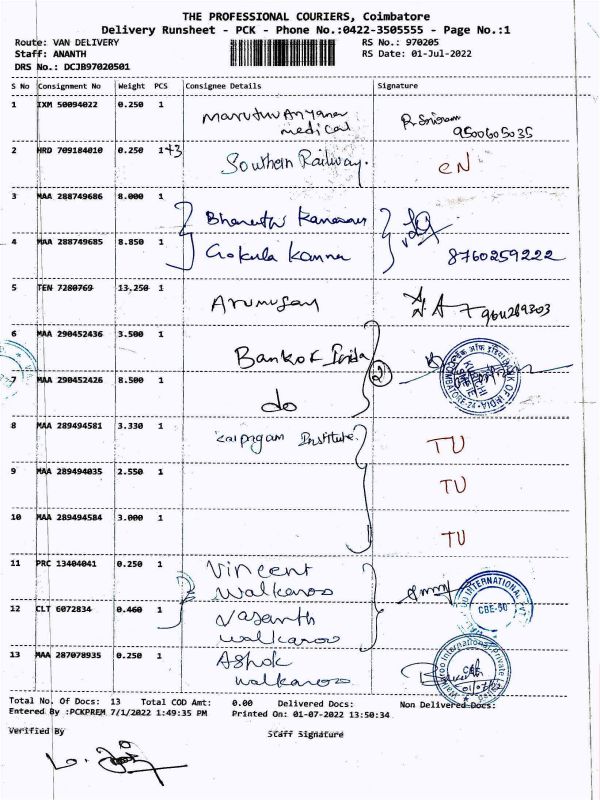 THE PROFESSIONAL COURIERS, Coimbatore
Delivery Runsheet - PCK - Phone No.:0422-3505555 - Page No.:1
Route: VAN DELIVERY RS No.: 970205
Staff: ANANTH RS Date: 01-Jul-2022
DRS No.: DCJB97020501
S No Consignment No Weight PCS Consignee Details Signature
1 IXM 50094022 0.250 1 Medical 9500605035
2 HRD 709184010 0.250 1 +3 Southern Railway. CN
3 MAA 288749686 8.000 1
4 MAA 288749685 8.850 1 Gokula Kanna 8760259222
5 TEN 7280769 13.250 1 Arumugam
6 MAA 290452436 3.500 1 Bank of India
7 MAA 290452426 8.500 1 do 2
8 MAA 289494581 3.330 1 Institute. TU
9 MAA 289494035 2.550 1 TU
10 MAA 289494584 3.000 1 TU
11 PRC 13404041 0.250 1 Vincent Walkaroo
12 CLT 6072834 0.460 1 Vasanth Walkaroo
13 MAA 287078935 0.250 1 Ashok Walkaroo
Total No. Of Docs: 13 Total COD Amt: 0.00 Delivered Docs: Non Delivered Docs:
Entered By :PCKPREM 7/1/2022 1:49:35 PM Printed On: 01-07-2022 13:50:34
Verified By Staff Signature